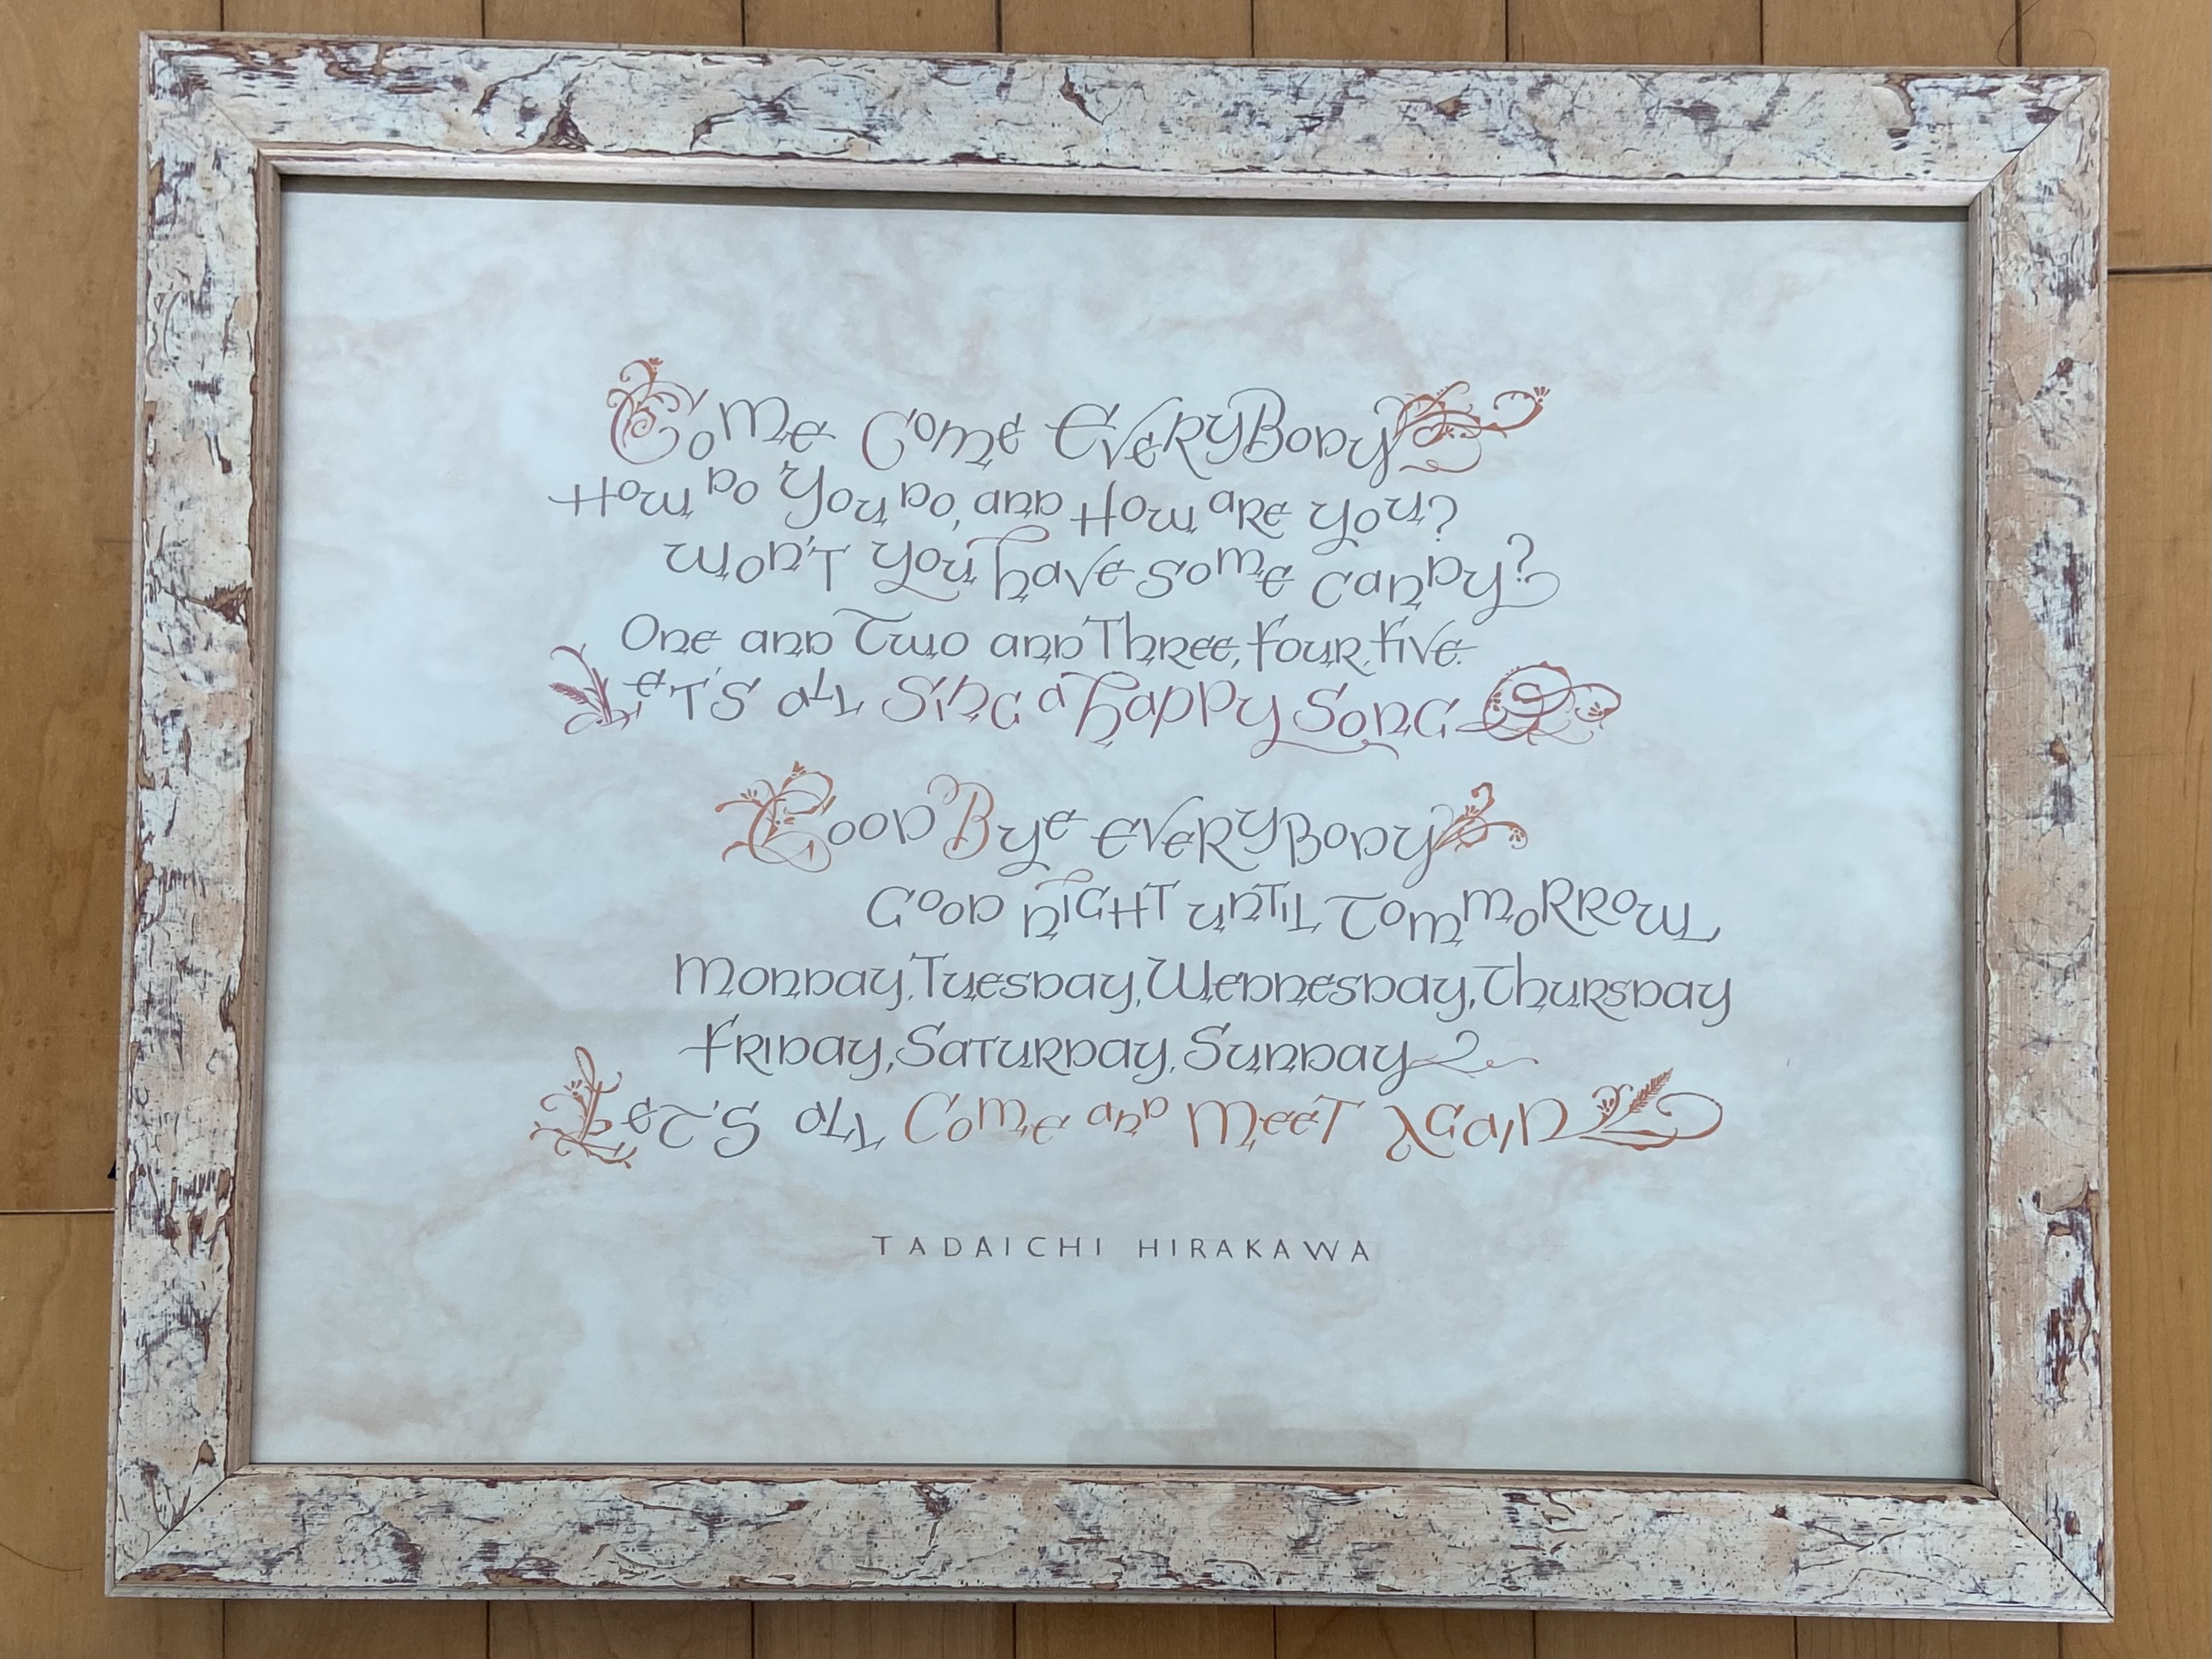 Come Come Everybody
How do you do, and How are you?
Won't you have some candy?
One and Two and Three, four, five.
Let's all sing a happy song
Good Bye everybody
Good night until Tommorrow
Monday, Tuesday, Wednesday, Thursday
Friday, Saturday, Sunday
Let's all Come and Meet Again
TADAICHI HIRAKAWA